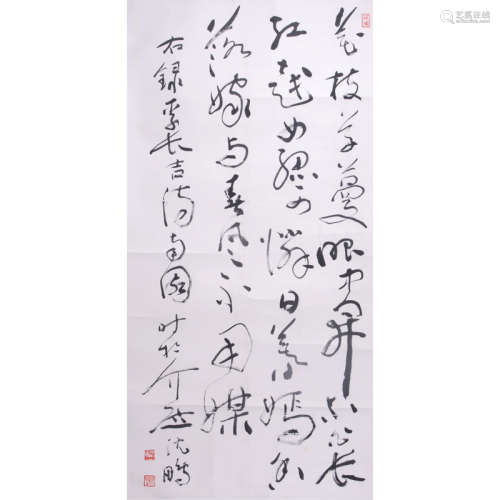 花枝草蔓眼中开小白长
红越女腮可怜日暮嫣香
落嫁与春风不用媒
右録李长吉诗南園时於介居沈鹏